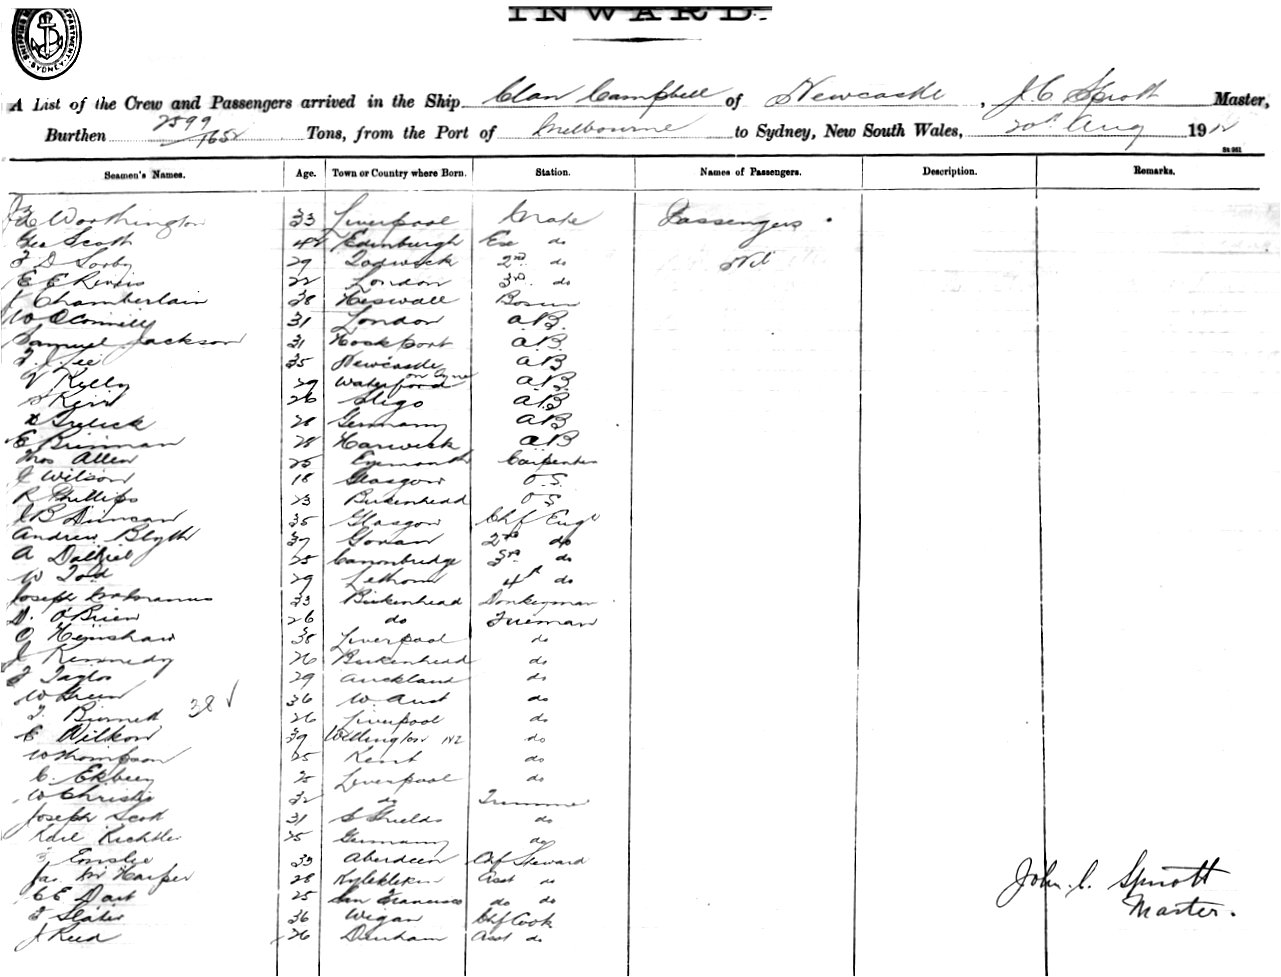 SHIPPING SYDNEY
INWARD.
A List of the Crew and Passengers arrived in the Ship Clan Campbell of Newcastle, J. C. Sprott Master,
Burthen 2599/1652 Tons, from the Port of Melbourne to Sydney, New South Wales, 20th Aug 1912
Seamen's Names. Age. Town or Country where Born. Station. Names of Passengers. Description. Remarks.
Worthington 33 Liverpool Mate Passengers.
Geo Scott 42 Edinburgh do Nil
F D Sorby 29 Todwick 2nd do
E E 22 London 3rd do
J Chamberlain 38 Heswall Bosun
W OConnill 31 London A.B.
Samuel Jackson 31 A.B.
T. J. Lee 35 Newcastle on Tyne A.B.
Kelly 29 Waterford A.B.
Kerr 26 Sligo A.B.
28 Germany A.B.
E Brinman 28 Harwich A.B.
Thos Allen 25 Eyemouth Carpenter
J Wilson 18 Glasgow O.S.
R Phillips 23 Birkenhead O.S.
J B Duncan 35 Glasgow Chf Engr
Andrew Blyth 37 Govan 2nd do
A Dalziel 25 Canonbridge 3rd do
W Tod 29 Lethom 4th do
Joseph McManus 33 Birkenhead Donkeyman
D. O'Brien 26 do Fireman
O Henshaw 38 Liverpool do
J Kennedy 26 Birkenhead do
J Taylor 29 Auckland do
W Green 36 W. Aust do
T. Burnett 26 Liverpool do
38 ✓
C Wilkon 39 Wellington NZ do
W Thompson 25 Kent do
C. Ekbery 25 Liverpool do
W Christie 32 do Trimmer
Joseph Scott 31 S Shields do
Karl Richtler 25 Germany do
Emslie 33 Aberdeen Chf Steward
Jas McHarper 28 Asst do
C E Dart 25 San Francisco do do
F Slater 36 Wigan Chf Cook
J Reed 26 Durham Asst do
John. C. Sprott
Master.